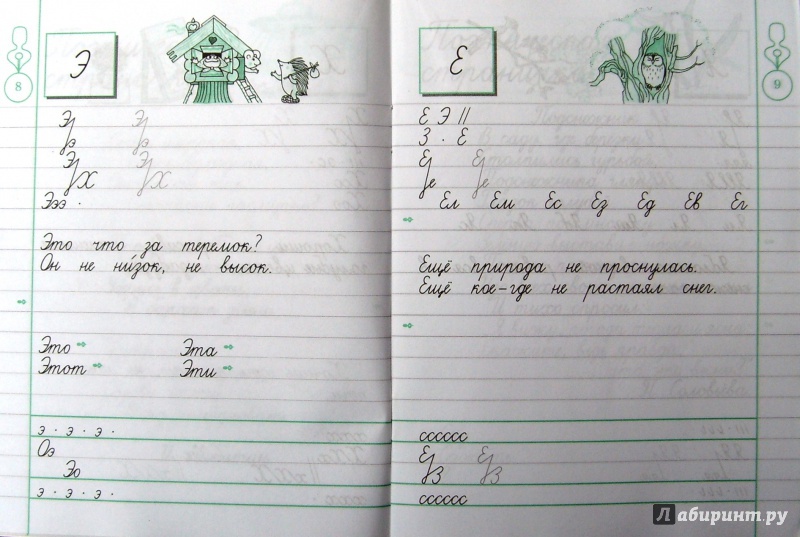 8
Э
Э Э
э э
Э Э
х х
Эээ ·
Это что за теремок?
Он не ни́зок, не высок.
Это Эта
Этот Эти
э · э · э ·
Оэ
Эо
э · э · э ·
9
Е
Е Э II
З · Е
Е Е
е е
Ел Ем Ес Ез Ед Ев Ег
Ещё природа не проснулась.
Ещё кое-где не растаял снег.
сссссс
Е Е
З З
сссссс
Лабиринт.ру